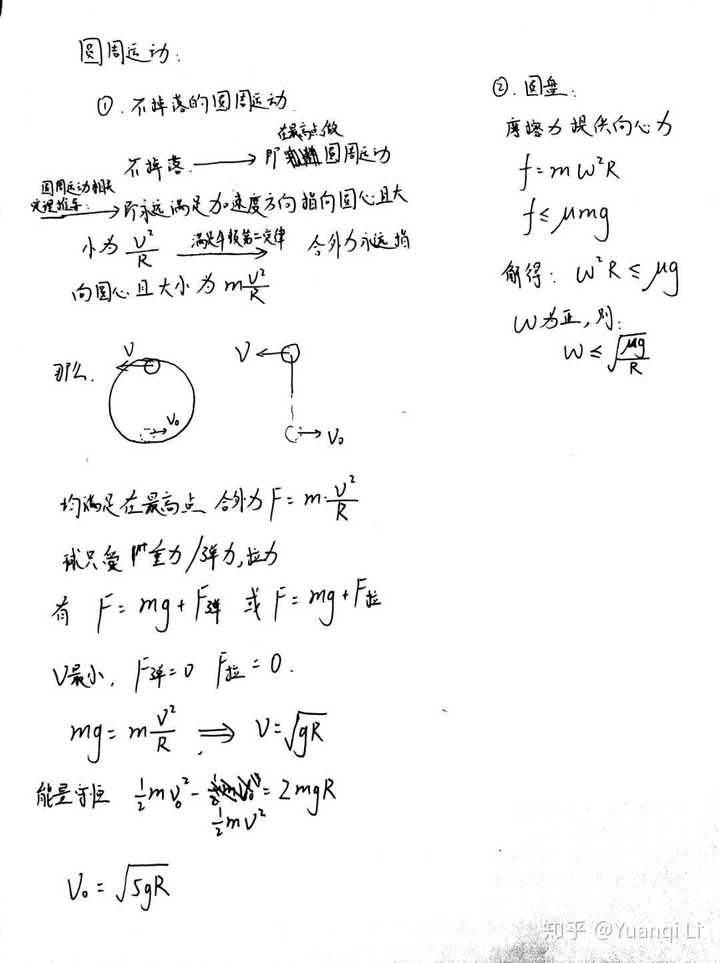 圆周运动:
①. 不掉落的圆周运动.
在最高点做
不掉落. → 即圆周运动
圆周运动相关
定理推导: → 即永远满足加速度方向指向圆心且大
小为 v²/R 满足牛顿第二定律 → 合外力永远指
向圆心且大小为 m v²/R
那么.
V
V₀
V
V₀
均满足在最高点 合外力 F = m·v²/R
球只受 重力/弹力,拉力
有 F = mg + F弹 或 F = mg + F拉
V最小, F弹 = 0 F拉 = 0.
mg = m v²/R ⟹ V = √gR
能量守恒 ½mv₀² - = 2mgR
½mv²
V₀ = √5gR
②. 圆盘:
摩擦力提供向心力
f = mω²R
f ≤ μmg
解得: ω²R ≤ μg
ω为正, 则:
ω ≤ √μg/R
知乎 @Yuanqi Li